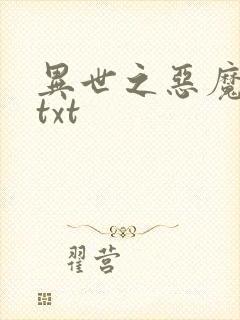 異世之惡魔
txt
翟营